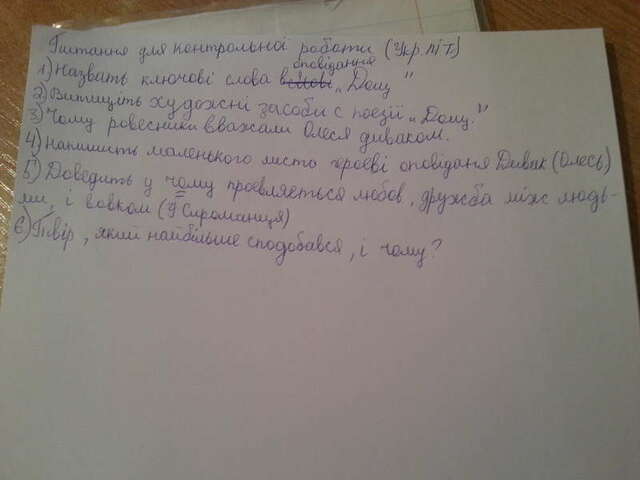 Питання для контрольної роботи (Укр. літ.)
оповідання
1) Назвать ключові слова в „Дощ"
2) Випишіть художні засоби с поезії „Дощ."
3) Чому ровесники вважали Олеся диваком.
4) Напишить маленького листа героєві оповіданя Дивак (Олесь)
5) Доведить у чому проявляється любов, дружба між людь-
ми, і вовком (У Сіроманця)
6) Твір, який найбільше сподобався, і чому?